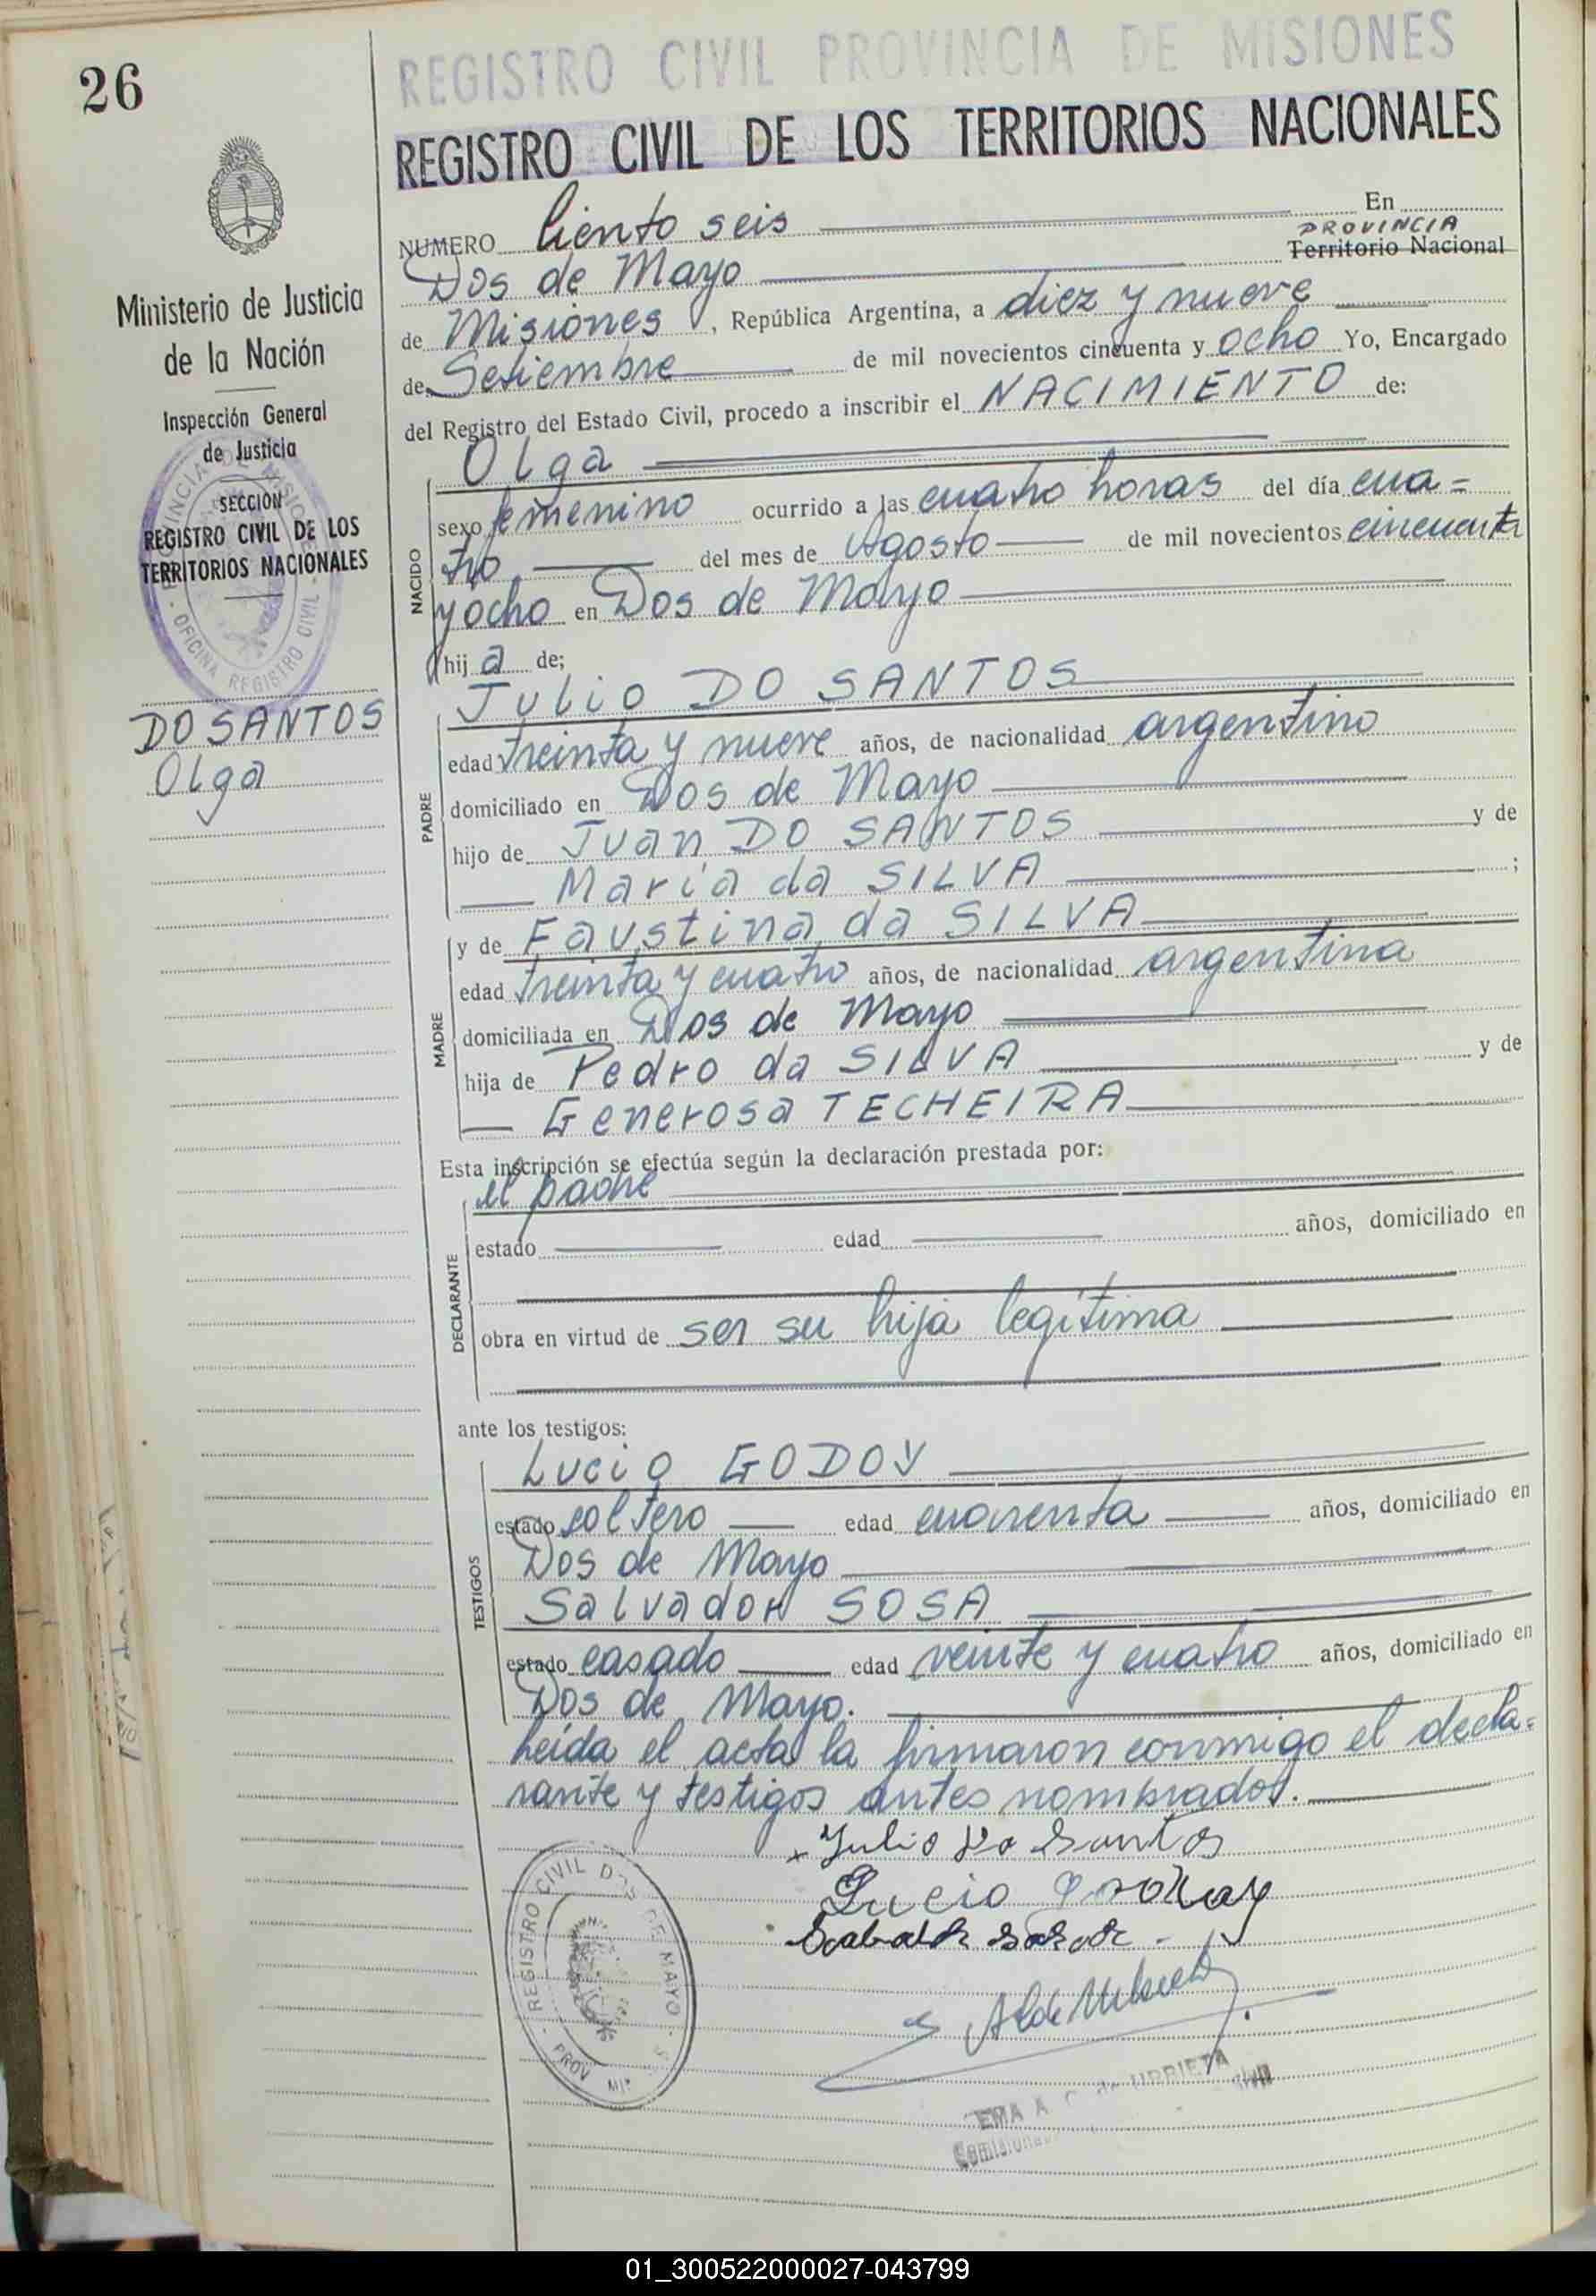 26
REGISTRO CIVIL PROVINCIA DE MISIONES
REGISTRO CIVIL DE LOS TERRITORIOS NACIONALES
Ministerio de Justicia
de la Nación
Inspección General
de Justicia
SECCIÓN
REGISTRO CIVIL DE LOS
TERRITORIOS NACIONALES
PROVINCIA DE MISIONES - OFICINA REGISTRO CIVIL -
DO SANTOS
Olga
NUMERO Ciento seis En
PROVINCIA
Dos de Mayo Territorio Nacional
de Misiones, República Argentina, a diez y nueve
de Setiembre de mil novecientos cincuenta y ocho Yo, Encargado
del Registro del Estado Civil, procedo a inscribir el NACIMIENTO de:
Olga
NACIDO
sexo femenino ocurrido a las cuatro horas del día cua=
tro del mes de Agosto de mil novecientos cincuenta
y ocho en Dos de Mayo
hij a de;
Julio DO SANTOS
PADRE
edad treinta y nueve años, de nacionalidad argentino
domiciliado en Dos de Mayo
hijo de Juan DO SANTOS y de
María da SILVA ;
MADRE
y de Faustina da SILVA
edad treinta y cuatro años, de nacionalidad argentina
domiciliada en Dos de Mayo
hija de Pedro da SILVA y de
Generosa TECHEIRA
Esta inscripción se efectúa según la declaración prestada por:
el padre
DECLARANTE
estado edad años, domiciliado en
obra en virtud de ser su hija legítima
ante los testigos:
TESTIGOS
Lucio GODOY
estado soltero edad cuarenta años, domiciliado en
Dos de Mayo
Salvador SOSA
estado casado edad veinte y cuatro años, domiciliado en
Dos de Mayo.
Leída el acta la firmaron conmigo el decla=
rante y testigos antes nombrados.
x Julio Do Santos
Lucio
REGISTRO CIVIL DOS DE MAYO - PROV
EMA A. de URRIETA
01_300522000027-043799